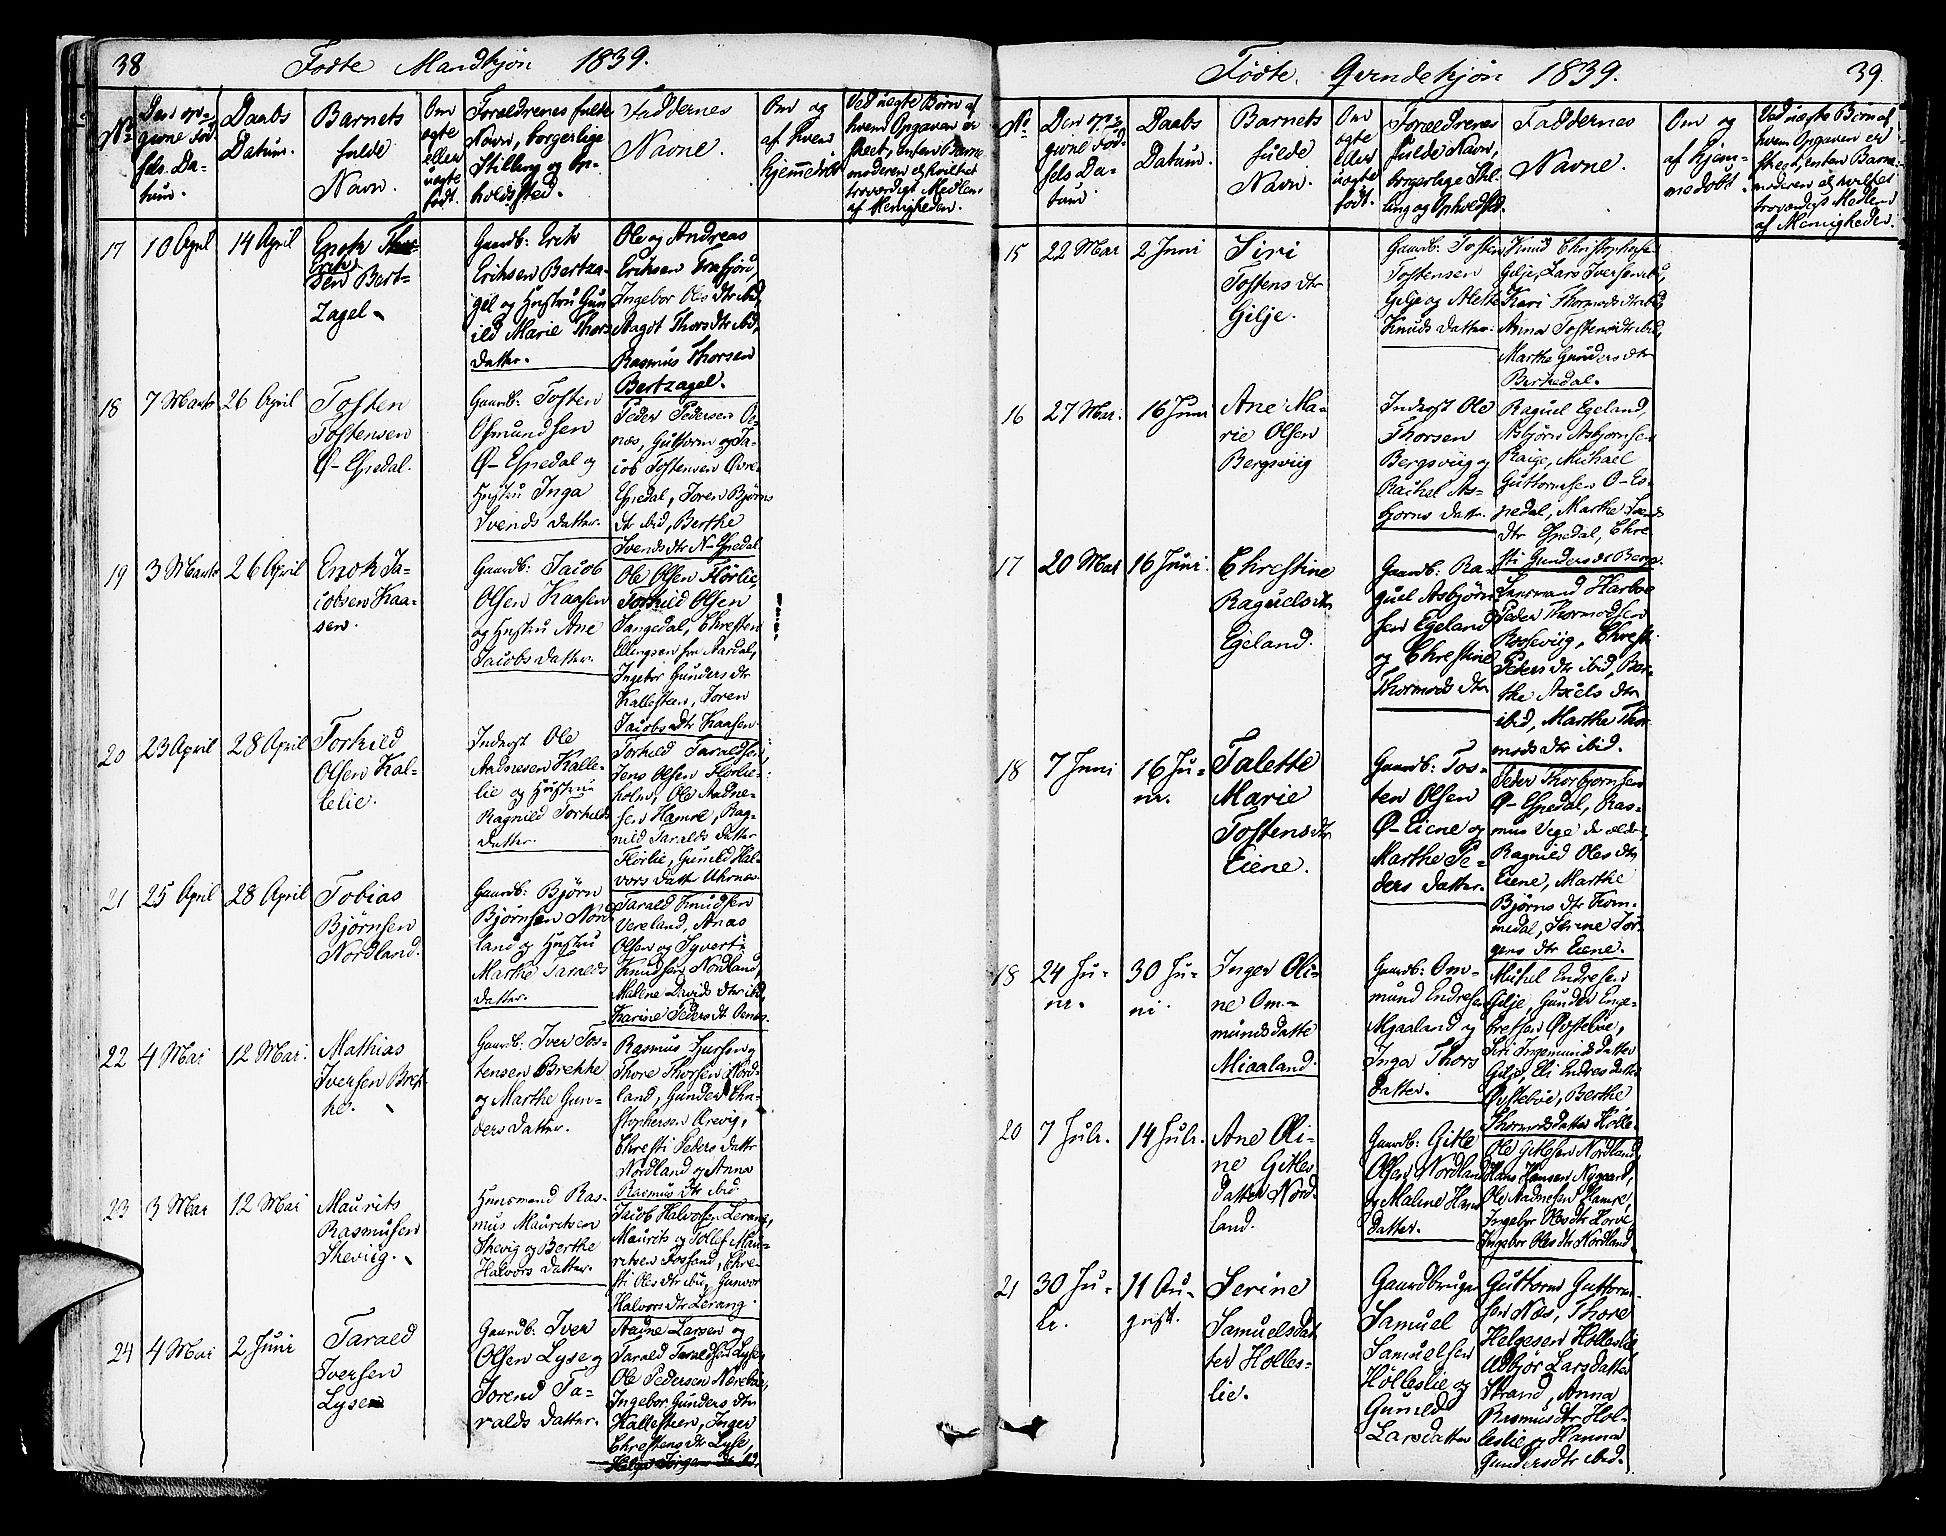 38
Fødte Mandkjøn 1839.
No
Den opgivne Fødsels Datum.
Daabs Datum.
Barnets fulde Navn.
Om ægte eller uægte født.
Forældrenes fulde Navn, borgerlige Stilling og Opholdsted.
Faddernes Navne.
Om og af hvem hjemmedøbt
Ved uægte Børn af hvem Opgaven er skeet, enten Barnemoderen el hvilket troværdigt Medlem af Menigheden.
17
10 April
14 April
Enok
Eriksen Bertzagel
Gaardb: Erik
Eriksen Bertzagel og Hustru Gunild Marie Thorsdatter.
Ole og Andreas
Eriksen
Ingebor Olsdtr ibid,
Aagot Thorsdtr ibid,
Rasmus Thorsen
Bertzagel.
18
7 Marts
26 April
Tosten
Tostensen
Ø-Espedal.
Gaardb: Tosten
Osmundsen
Ø-Espedal og
Hustru Inga
Svends datter.
Peder Pedersen Oenæs, Guttorm og Jacob Tostensen Øvre
Espedal, Soren Bjørns
dtr ibid, Berthe
Svends dtr N-Espedal
19
3 Marts
26 April
Enok Jacobsen Kaasen.
Gaardb: Jacob
Olsen Kaasen
og Hustru Ane
Jacobs datter.
Ole Olsen Flørlie
Torkild Olsen
Sangedal, Chresten
Ellingsen fra Aardal,
Ingebor Gunders dtr
Kallesteen, Soren
Jacobsdtr Kaasen.
20
23 April
28 April
Torkild
Olsen Kallelie.
Inderst Ole
Aadnesen Kallelie og Hustru
Ragnild Torkildsdatter.
Torkild Taraldsen,
Jens Olsen Flørlieholm, Ole Aadnesen Hamre, Ragnild Taralds datter
Flørlie, Gunild Halvors datter
21
25 April
28 April
Tobias
Bjørnsen
Nordland.
Gaardb: Bjørn
Bjørnsen Nordland og Hustru
Marthe Taralds
datter.
Tarald Knudsen
Vereland,
Olsen og Syvert
Knudsen Nordland,
Malene Davids dtr ibid,
Karine Pedersdtr Oenæs.
22
4 Mai
12 Mai.
Mathias
Iversen Brekke.
Gaardb: Iver Tostensen Brekke
og Marthe Gunders datter.
Rasmus
Thore Thorsen Nordland, Gunder Christophersen
Chresti Peders datter
Nordland og Anna
Rasmus dtr ibid
23
3 Mai
12 Mai
Maurits
Rasmusen
Skeviig.
Huusmand Rasmus Mauritsen
Skevig og Berthe
Halvors datter.
Jacob Halvorsen Lerang,
Maurits og Tollef Mauritsen Fossand, Chresti Oles dtr ibid, Gunvor
Halvors dtr Lerang.
24
4 Mai
2 Juni
Tarald
Iversen
Lysen
Gaardb: Iver
Olsen Lyse og
Sorend Taralds datter.
Aadne Larsen og
Tarald Taraldsen Lyse,
Ole Pedersen Nærebøe,
Ingebor Gunders dtr
Kallesteen, Inger
Chrestens dtr Lyse,
39.
Fødte Qvindekjøn 1839.
No
Den opgivne Fødsels Datum
Daabs Datum.
Barnets fulde Navn.
Om ægte eller uægte født.
Forældrenes fulde Navn, borgerlige Stilling og Opholdsted.
Faddernes Navne.
Om og af hjemmedøbt
Ved uægte Børn af hvem Opgaven er skeet, enten Barnemoderen el hvilket troværdigt Medlem af Menigheden.
15
22 Mai
2 Juni
Siri
Tostens dtr
Gilje.
Gaardb: Tosten
Tostensen
Gilje og Alette
Knuds datter.
Knud Christophersen
Gilje, Lars Iversen ibid,
Kari Thormodsdtr ibid,
Anna Tostensdtr ibid,
Marthe Gunders dtr
Birkedal.
16
27 Mai.
16 Juni
Ane Marie Olsen
Bergsviig
Inderst Ole
Thorsen
Bergsviig og
Rachel Asbjørns datter.
Raguel Egeland,
Asbjørn Asbjørnsen
Raige, Michael
Guttormsen Ø-Espedal, Marthe
dtr Espedal, Chresti Gunders dr Berge.
17
20 Mai
16 Juni.
Chrestine
Raguelsdtr
Egeland.
Gaardb: Raguel Asbjørnsen Egeland
og Chrestine
Thormods dtr
Lensmand Harboe
Peder Thormodsen
Rosseviig, Chresti
Peders dtr ibid, Berthe Axels dtr
ibid, Marthe Thormods dtr ibid.
18
7 Juni
16 Juni.
Talette
Marie
Tostensdtr
Eiene.
Gaardb: Tosten Olsen
Ø-Eiene og
Marthe Peders datter.
Peder Thorbjørnsen
Ø-Espedal, Rasmus Vige de ældre,
Ragnild Oles dtr
Eiene, Marthe
Bjørns dtr Kommedal, Serine Jørgens dtr Eiene.
18
24 Juni.
30 Juni.
Inger Oline Ommundsdatter
Miaaland.
Gaardb: Ommund Endresen
Mjaaland og
Inga Thors
datter.
Michel Endresen
Gilje, Gunder Engebretsen Øvstebøe,
Siri Ingemundsdatter
Gilje, Eli Endresdatter
Øvstebøe, Berthe
Thormodsdatter Hølle.
20
7 Juli.
14 Juli.
Ane Oline Gitles
datter Nordland.
Gaardb: Gitle
Olsen Nordland
og Malene Hans
datter.
Ole Gitlesen Nordland,
Hans Hansen Nygaard,
Ole Aadnesen Hamre,
Ingebor Olesdtr Horve,
Ingebor Olesdtr Nordland.
21
30 Juli.
11 August.
Serine
Samuelsdatter Holleslie.
Gaardbruger
Samuel
Samuelsen
Hølleslie og
Gunild
Larsdatter
Guttorm Guttormsen Næs, Thore
Helgesen Hølleslie
Udbjør Larsdatter
Strand, Anna
Rasmusdtr Holleslie og Hanna
Gundersdtr ibid.